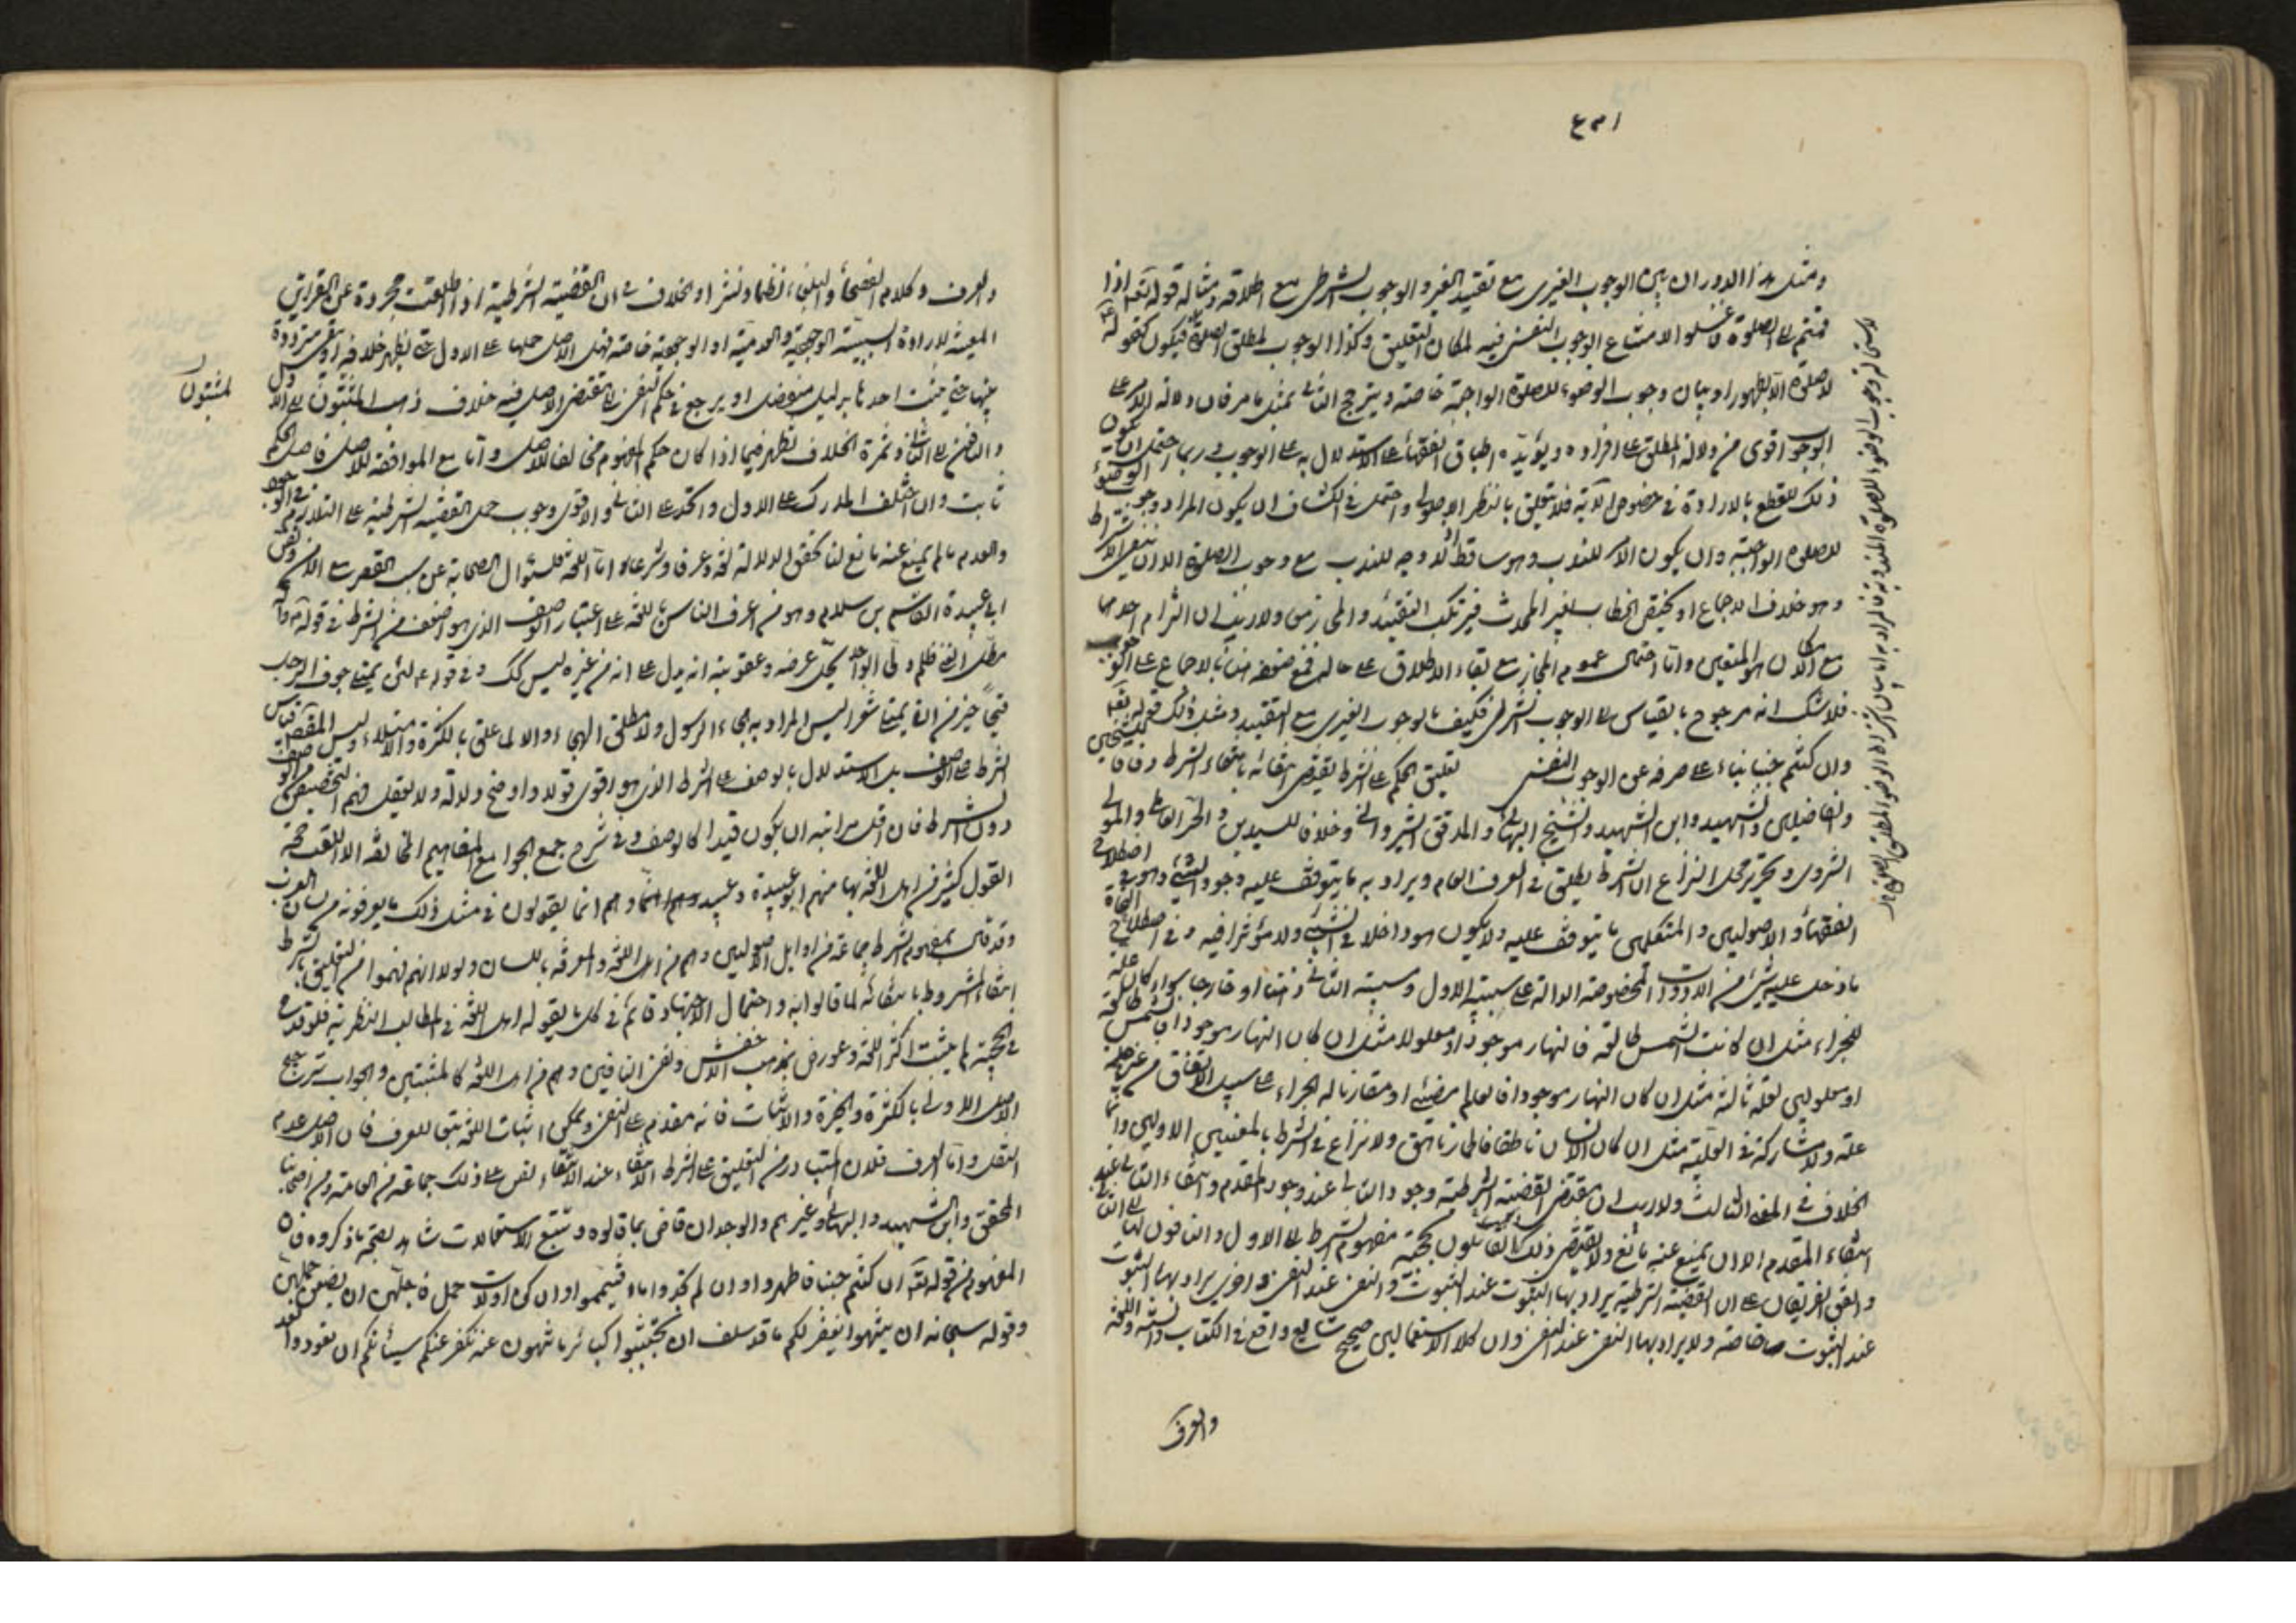 ومثل هذا الدوران بين الوجوب الغيرى مع تقييد الغير والوجوب الشرطى مع اطلاقه ومثاله قوله تعالى اذا
قمتم الى الصلوة فاغسلوا لامتناع الوجوب النفسى فيه لمكان التعليق وكذا الوجوب لمطلق الصلوة فيكون كقوله
لا صلوة الا بطهور او بيان وجوب الوضوء للصلوة الواجبة خاصة ويترجح الثانى بمثل ما مر فان دلالة الامر على
الوجوب اقوى من دلالة المطلق على افراده ويؤيده اطباق الفقهاء على الاستدلال به على الوجوب وربما احتمل ان يكون
ذلك للقطع بالارادة فى خصوص الآية فلا تعلق بالنظر الاصولى واحتمل فى الكشاف ان يكون المراد وجوب الوضوء
للصلوة الواجبة وان يكون الامر للندب وهو ساقط اذ لا وجه للندب مع وجوب الصلوة الا ان ينفى الاشتراط
وهو خلاف الاجماع او يختص الخطاب بغير المحدث فيرتكب التقييد والمجاز من ولا ريب ان التزام احدهما
مع الامكان هو المتعين واما احتمال عموم المجاز مع بقاء الاطلاق على حاله فمع ضعفه منافٍ للاجماع على الوجوب
فلا شك انه مرجوح بالقياس الى الوجوب الشرطى فكيف بالوجوب الغيرى مع التقييد ومثل ذلك قوله تعالى
وان كنتم جنبا بناء على صرفه عن الوجوب النفسى تعليق الحكم على الشرط يقتضى انتفائه بانتفاء الشرط وفاقا للشيخين
والفاضلين والشهيد وابن الشهيد والشيخ البهائى والمدقق الشيروانى وخلافا للسيدين والحر العاملى والمولى
الشروى وتحرير محل النزاع ان الشرط يطلق فى العرف العام ويراد به ما يتوقف عليه وجود الشئ وهو فى اصطلاح
الفقهاء والاصوليين والمتكلمين ما يتوقف عليه ولا يكون هو داخلا فى الشئ ولا مؤثرا فيه وفى اصطلاح النحاة
ما دخل عليه شئ من الادوات المخصوصة الدالة على سببية الاول ومسببية الثانى ذهنا او خارجا سواء كان علة
للجزاء مثل ان كانت الشمس طالعة فالنهار موجود او معلولا مثل ان كان النهار موجودا فالشمس طالعة
او معلولين لعلة ثالثة مثل ان كان النهار موجودا فالعالم مضئ او مقارنا له الجزاء على سبيل الاتفاق من غير علية
علة ولا مشاركة فى العلية مثل ان كان الانسان ناطقا فالحمار ناهق ولا نزاع فى الشرط بالمعنيين الاولين وانما
الخلاف فى المعنى الثالث ولا ريب ان مقتضى القضية الشرطية وجود التالى عند وجود المقدم وانتفاء التالى عند
انتفاء المقدم الا ان يمنع عنه مانع ولا يقتضى ذلك القائلون بحجية مفهوم الشرط الى الاول والنافون لها الى الثانى
واتفق الفريقان على ان القضية الشرطية يراد بها الثبوت عند الثبوت والنفى عند النفى واخرى يراد بها الثبوت
عند الثبوت خاصة ولا يراد بها النفى عند النفى وان كلا الاستعمالين صحيح شايع واقع فى الكتاب والسنة واللغة
والعرف
والعرف وكلام الفصحاء والبلغاء نظما ونثرا والخلاف فى ان القضية الشرطية اذا اطلقت مجردة عن القرائن
المعينة لارادة السببية الوجودية والعدمية او الوجودية خاصة فهل الاصل حملها على الاول حتى يظهر خلافه او يبقى مترددة
بينهما حتى يثبت احدهما بدليل منفصل او يرجع فى حكم النفى الى مقتضى الاصل فيه خلاف ذهب المثبتون الى الاول
المثبتون
والنافون الى الثانى وثمرة الخلاف تظهر فيما اذا كان حكم المفهوم مخالفا للاصل واما مع الموافقة للاصل فاصل الحكم
ثابت وان اختلف المدرك على الاول واتحد على الثانى والاقوى وجوب حمل القضية الشرطية على التلازم فى الوجود
والعدم ما لم يمنع عنه مانع لنا تحقق الدلالة لغة وعرفا وشرعا اما اللغة فلسؤال الصحابة عن سبب القصر مع الامن ونص
ابى عبيدة القاسم بن سلام وهو من اعرف الناس باللغة على اعتبار الوصف الذى هو اضعف من الشرط فى قوله
مطل الغنى ظلم ولى الواجد يحل عرضه وعقوبته انه يدل على ان من غيره ليس كك وفى قوله لئن يمتلى جوف الرجل
قيحا خير من ان يمتلى شعرا ليس المراد به هجاء الرسول ولا مطلق الهجاء والا لما علق بالكثرة والامتلاء وليس المقصد قياس
الشرط على الوصف بل الاستدلال بالوصف على الشرط الذى هو اقوى قولا واوضح دلالة ولا يعقل فهم التخصيص من الوصف
دون الشرط فان اقل مراتبه ان يكون قيدا كالوصف وفى شرح جمع الجوامع المفاهيم المخالفة الا اللقب حجة
القول كثير من اهل اللغة بها منهم ابو عبيدة وعبيد وهم انما يقولون فى مثل ذلك ما يعرفونه من لسان العرب
وقد قال بمفهوم الشرط جماعة من اوايل الاصوليين وهم من اهل اللغة والمعرفة باللسان ولولا انهم فهموا من التعليق بالشرط
انتفاء المشروط بانتفائه لما قالوا به واحتمال الاجتهاد قائم فى كل ما يقوله اهل اللغة فى المطالب النظرية فلو قدح
فى الحجية لما يثبت اكثر اللغة وعورض بمذهب الاخفش ونص النافين وهم من اهل اللغة كالمثبتين والجواب ترجيح
الاصل الاول بالكثرة والخبرة والاثبات فانه مقدم على النفى ويمكن اثبات اللغة بتبع للعرف فان الاصل عدم
النقل واما العرف فلان المتبادر من التعليق على الشرط الانتفاء عند الانتفاء نص على ذلك جماعة من العامة ومن اصحابنا
المحقق وابن الشهيد والبهائى وغيرهم والوجدان قاض بما قالوه وتتبع الاستعمالات شاهد بصحة ما ذكروه فان
المفهوم من قوله تعالى ان كنتم جنبا فاطهروا وان لم تجدوا ماء فتيمموا وان كن اولات حمل فاجلهن ان يضعن حملهن
وقوله سبحانه ان ينتهوا يغفر لكم ما قد سلف ان تجتنبوا كبائر ما تنهون عنه نكفر عنكم سيئاتكم ان يعودوا نعد